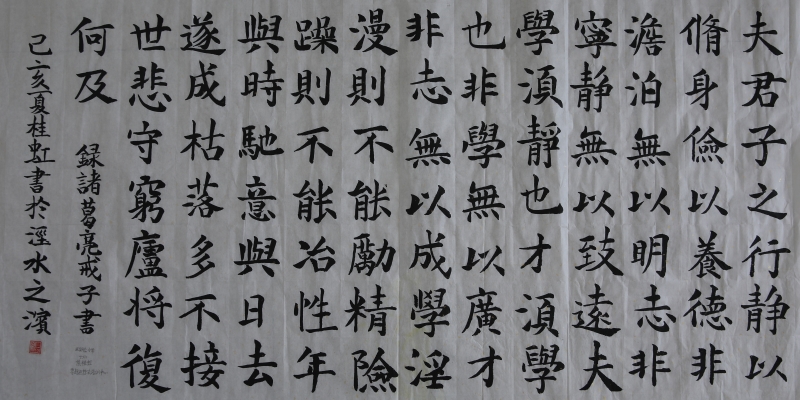 夫君子之行静以
脩身儉以養德非
澹泊無以明志非
寧静無以致遠夫
學湏靜也才湏學
也非學無以廣才
非志無以成學淫
漫則不能勵精險
躁則不能冶性年
與時馳意與日去
遂成枯落多不接
世悲守窮廬将復
何及
録諸葛亮戒子書
己亥夏桂虹書於涇水之濱